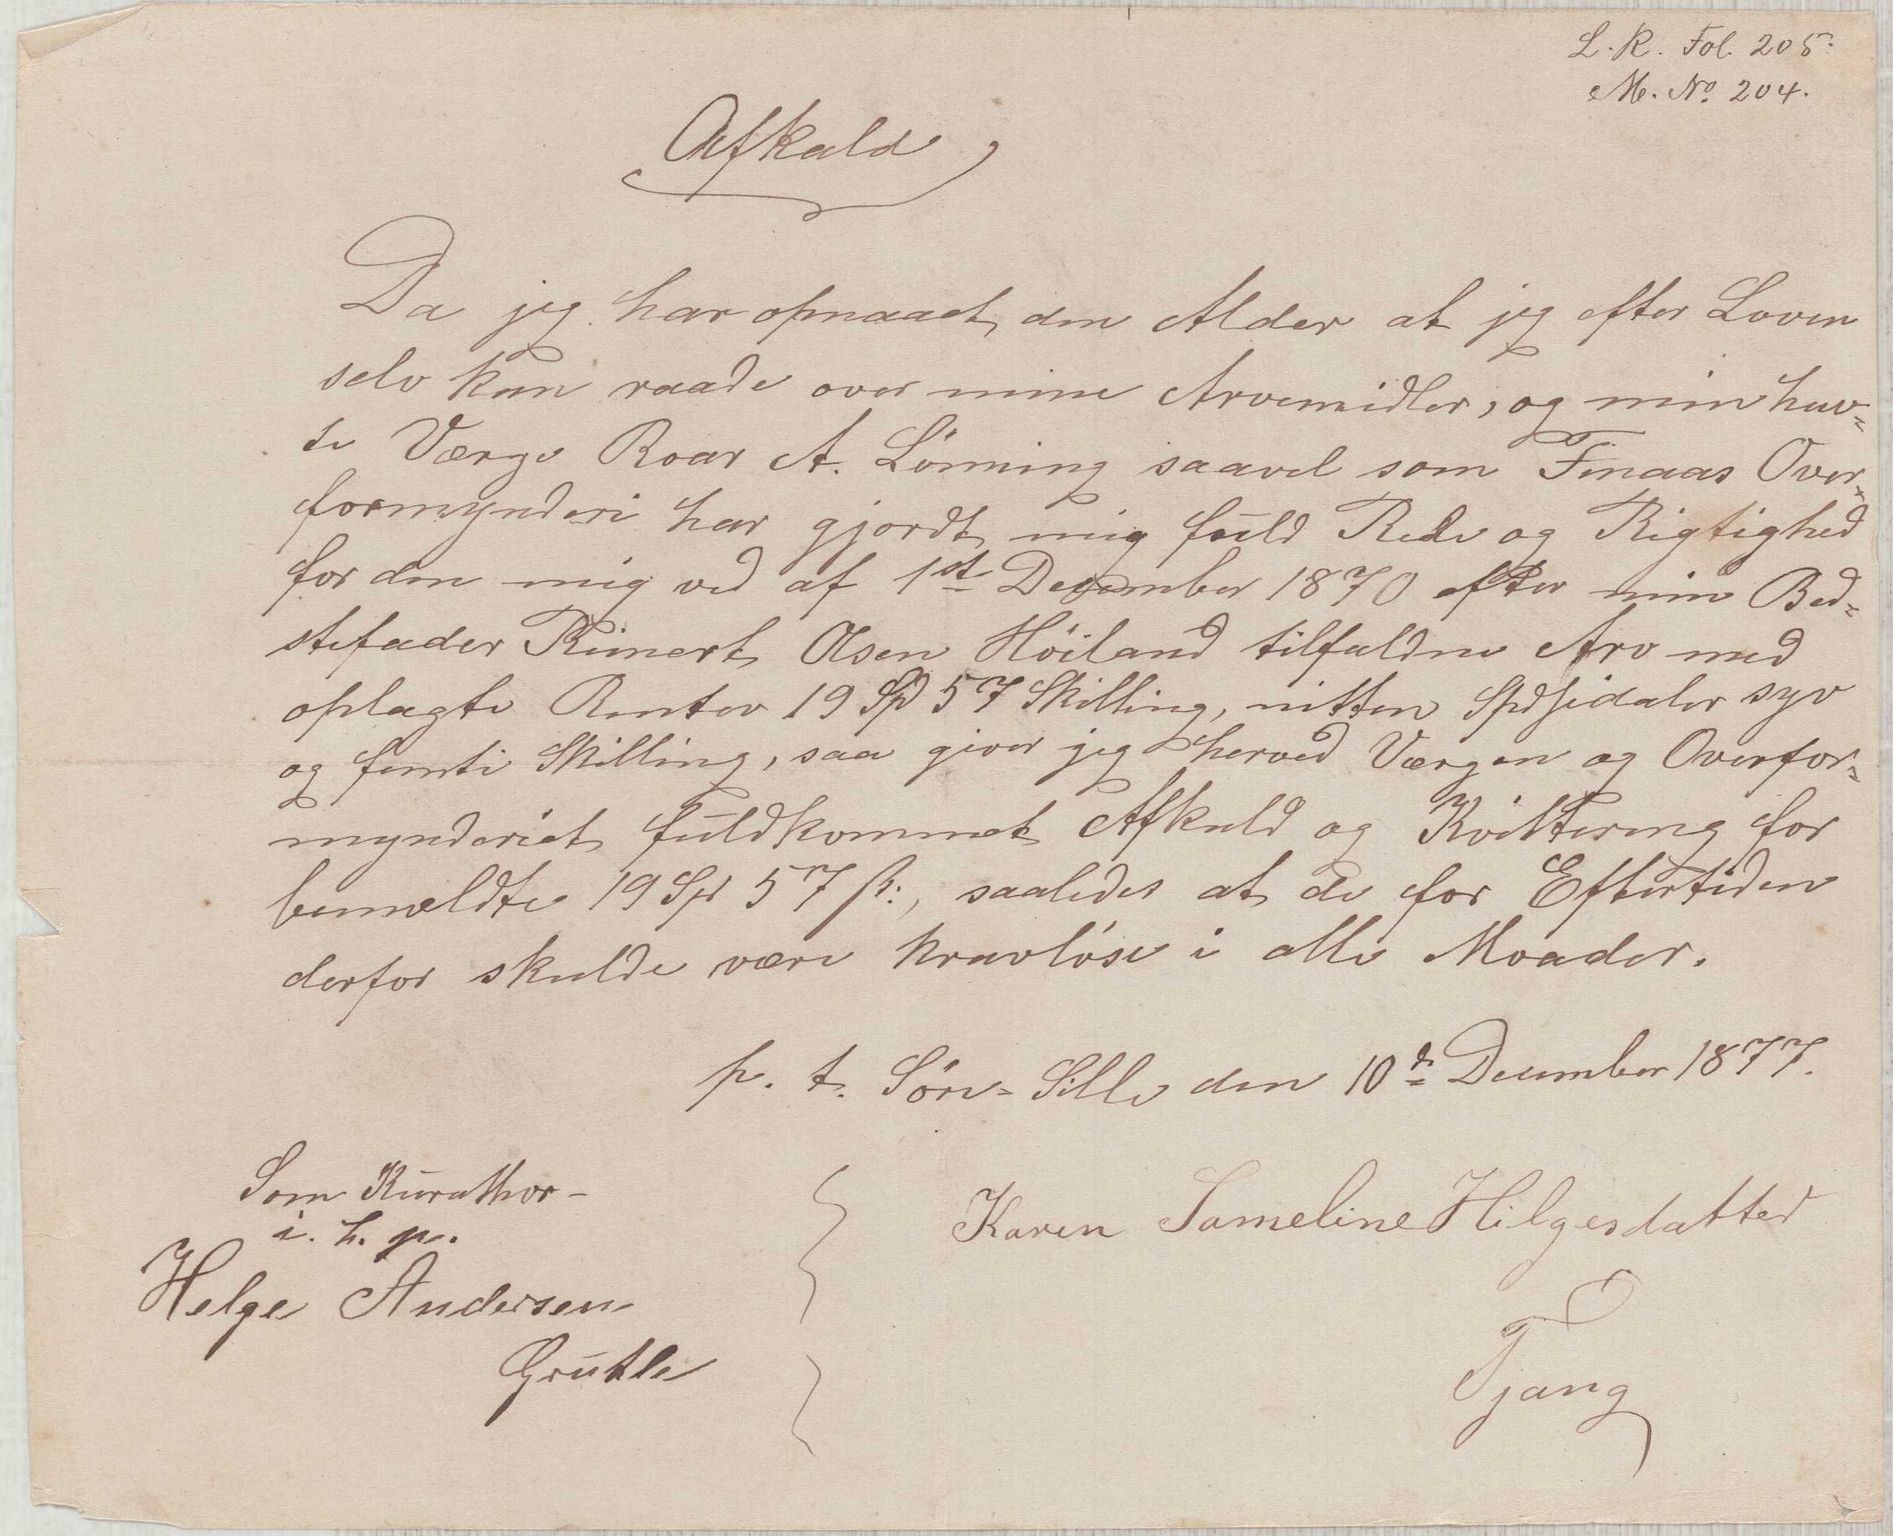 L. R. Fol. 205.
M. No. 204.
Afkald
Da jeg har opnaaet den Alder at jeg efter Loven
selv kan raade over mine Arvemidler, og min hav-
te Værge Roar A. Lönning saavel som Finaas Over-
formynderi har gjordt mig fuld Rede og Rigtighed
for den mig ved af 1st December 1870 efter min Bed-
stefader Reinert Olsen Höiland tilfaldne Arv med
oplagte Renter 19 Spd 57 Skilling, nitten Spesidaler syv
og femti Skilling, saa giver jeg herved Værgen og Overfor-
mynderiet fuldkommet Afkald og Kvittering for
bemeldte 19 Spd 57 ß:, saaledes at de for Eftertiden
derfor skulde være kravlöse i alle Maader.
p. t. Söre-Lille den 10de December 1877.
Som Kurathor -
i. h. p.
Helge Andersen
Grutle
Karen Sameline Hilgesdatter
Tjang